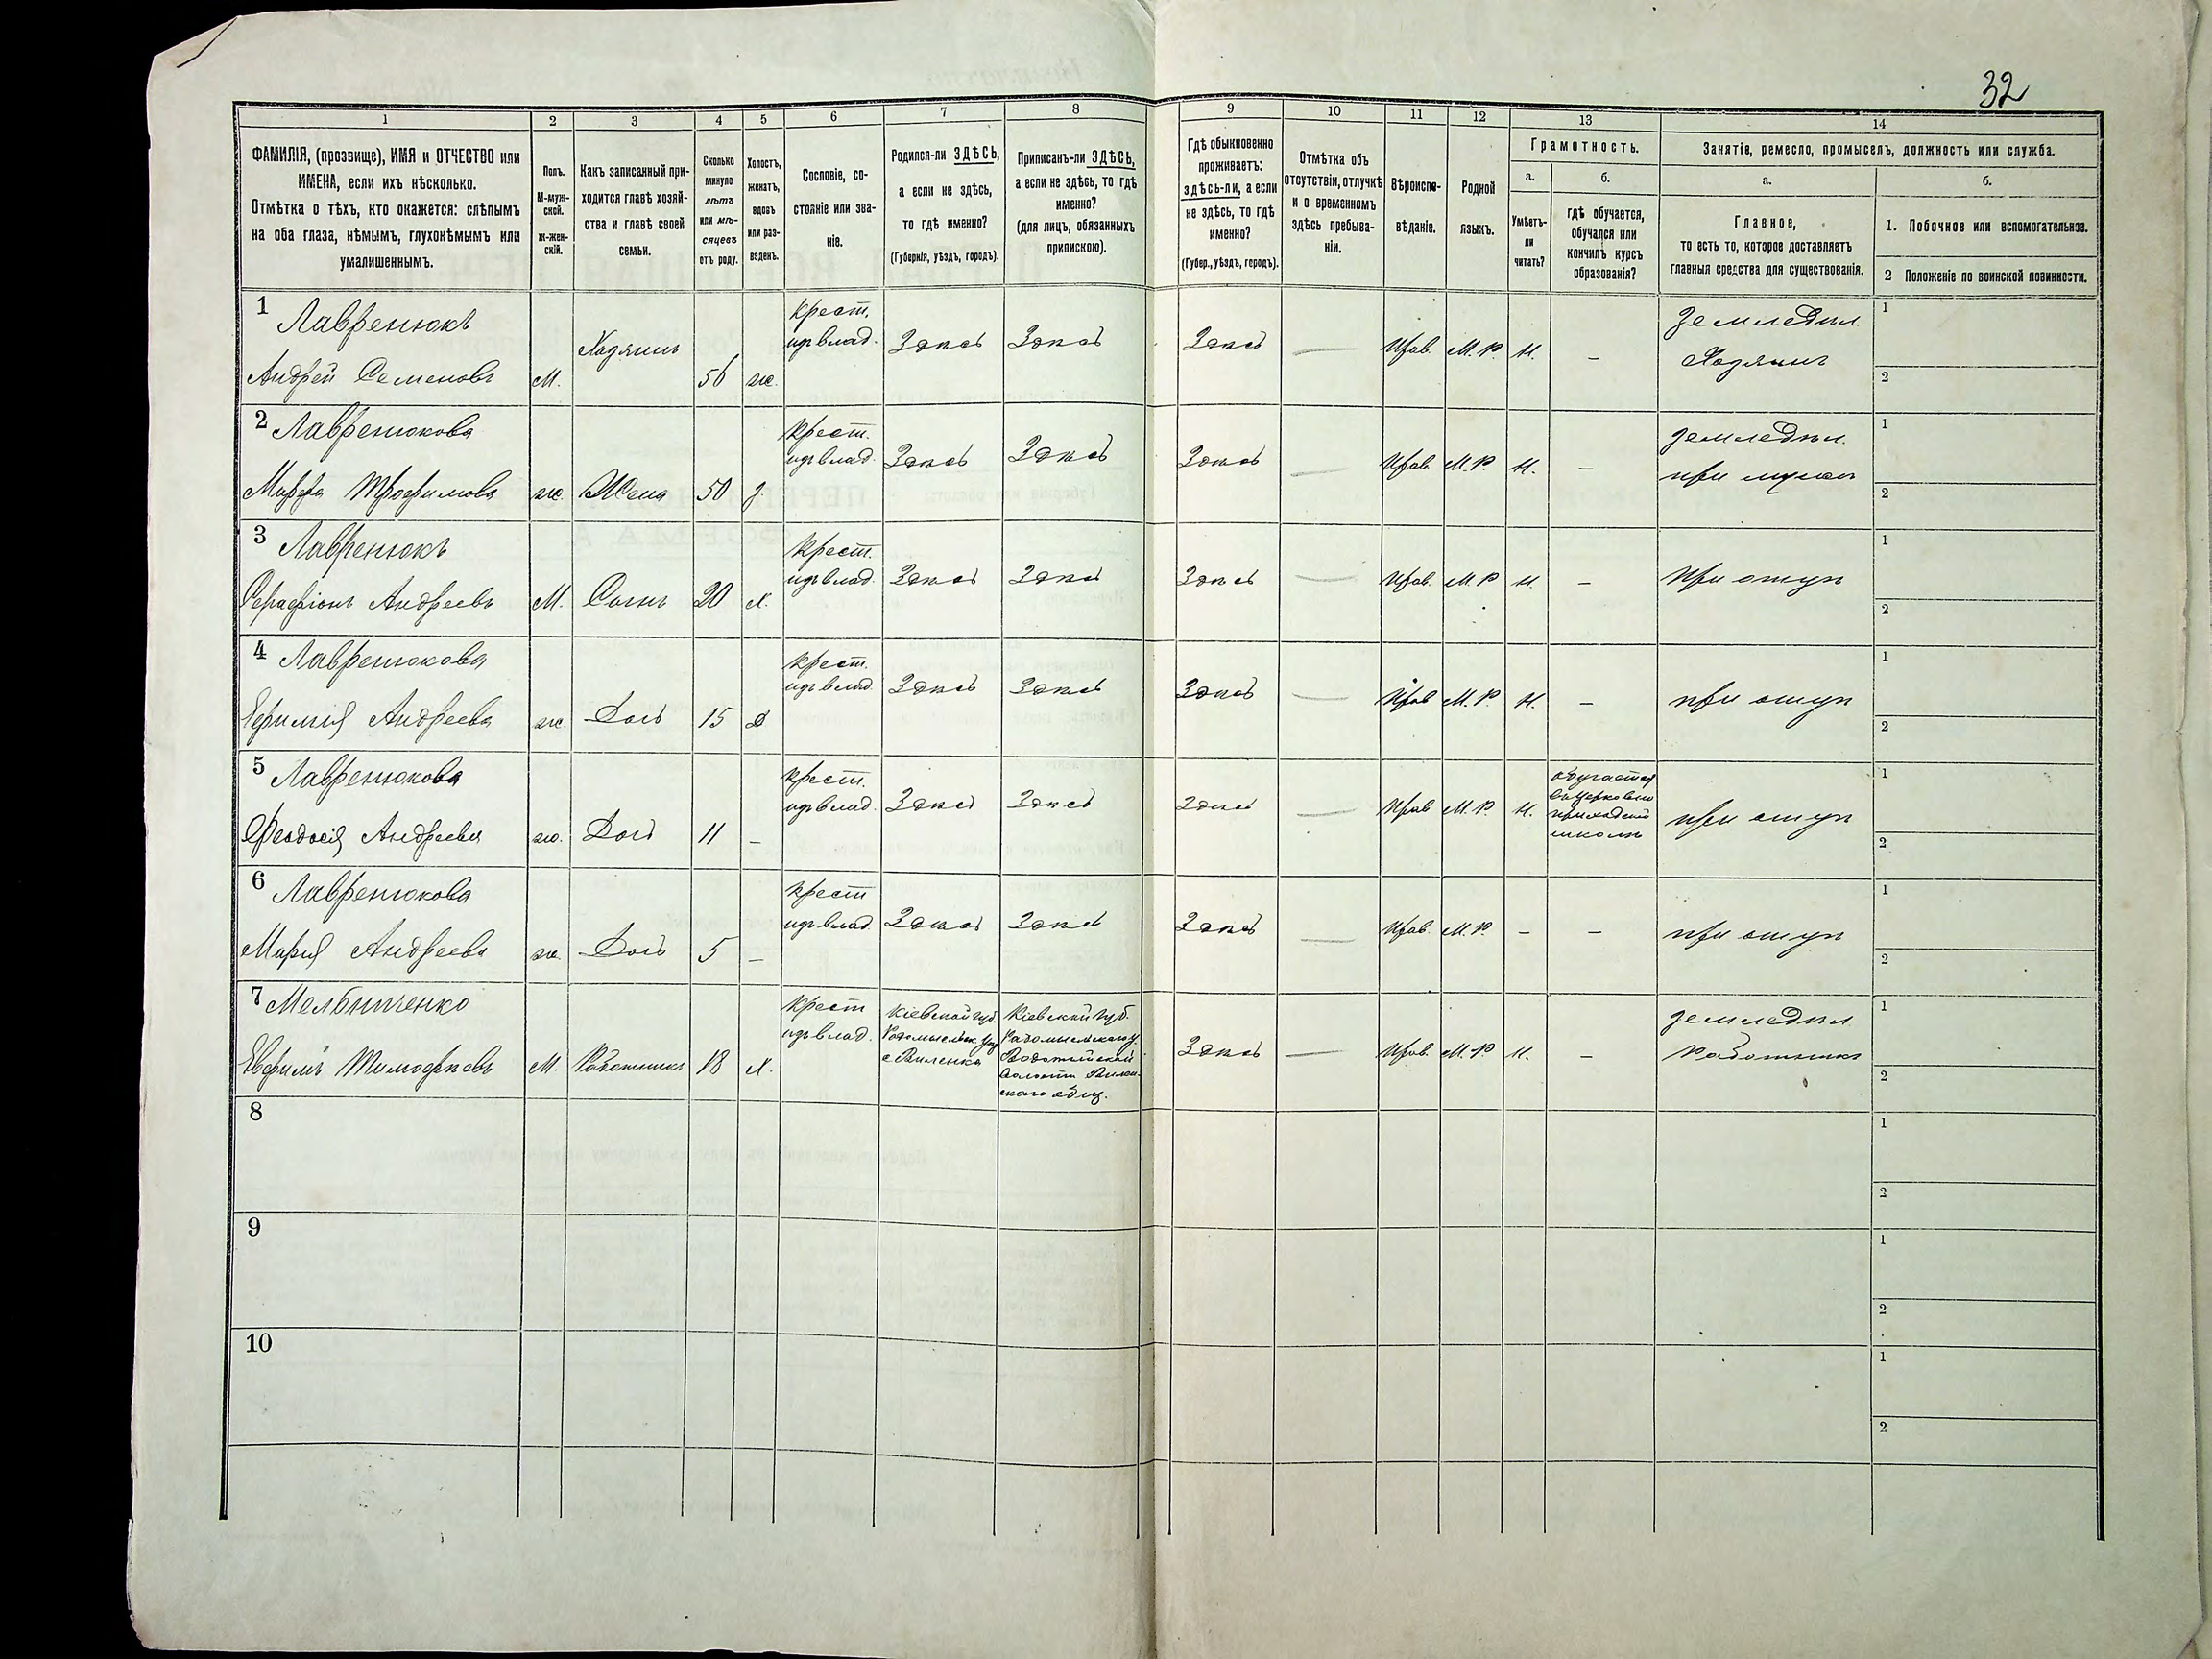 32
1
2
3
4
5
6
7
8
9
10
11
12
13
14
ФАМИЛІЯ, (прозвище), ИМЯ и ОТЧЕСТВО или
ИМЕНА, если ихъ нѣсколько.
Отмѣтка о тѣхъ, кто окажется: слѣпымъ
на оба глаза, нѣмымъ, глухонѣмымъ или
умалишеннымъ.
Полъ.
М-муж-
ской.
Ж-жен-
скій.
Какъ записанный при-
ходится главѣ хозяй-
ства и главѣ своей
семьи.
Сколько
минуло
лѣтъ
или мѣ-
сяцевъ
отъ роду.
Холостъ,
женатъ,
вдовъ
или раз-
веденъ.
Сословіе, со-
стояніе или зва-
ніе.
Родился-ли ЗДѢСЬ,
а если не здѣсь,
то гдѣ именно?
(Губернія, уѣздъ, городъ).
Приписанъ-ли ЗДѢСЬ,
а если не здѣсь, то гдѣ
именно?
(для лицъ, обязанныхъ
припискою).
Гдѣ обыкновенно
проживаетъ:
здѣсь-ли, а если
не здѣсь, то гдѣ
именно?
(Губер., уѣздъ, городъ).
Отмѣтка объ
отсутствіи, отлучкѣ
и о временномъ
здѣсь пребыва-
ніи.
Вѣроиспо-
вѣданіе.
Родной
языкъ.
Грамотность.
а.
Умѣетъ-
ли
читать?
б.
гдѣ обучается,
обучался или
кончилъ курсъ
образованія?
Занятіе, ремесло, промыселъ, должность или служба.
а.
Главное,
то есть то, которое доставляетъ
главныя средства для существованія.
б.
1. Побочное или вспомогательное.
2 Положеніе по воинской повинности.
1 Лавренюкъ
Андрей Семеновъ М. Хозяинъ 56 ж. крест. изъ влад. Здѣсь Здѣсь Здѣсь — Прав. М. Р. Н. – земледѣл. Хозяинъ 1 2
2 Лавренюкова
Марфа Трофимова ж. Жена 50 з. крест. изъ влад. Здѣсь Здѣсь Здѣсь — Прав. М. Р. Н. – земледѣл. при мужѣ 1 2
3 Лавренюкъ
Серафіонъ Андреевъ М. Сынъ 20 х. крест. изъ влад. Здѣсь Здѣсь Здѣсь — Прав. М. Р Н. – При отцѣ 1 2
4 Лавренюкова
Андреева ж. Дочь 15 д крест. изъ влад. Здѣсь Здѣсь Здѣсь — Прав М. Р. Н. – при отцѣ 1 2
5 Лавренюкова
Феодосія Андреева ж. Дочь 11 – крест. изъ влад. Здѣсь Здѣсь Здѣсь — Прав М. Р. Н. обучается въ церковно приходской школѣ при отцѣ 1 2
6 Лавренюкова
Марія Андреева ж. Дочь 5 – крест изъ влад. Здѣсь Здѣсь Здѣсь — Прав. М. Р. – – при отцѣ 1 2
7 Мельниченко
Евфимъ Тимофѣевъ М. Работникъ 18 х. крест изъ влад. Кіевской губ. Радомысльск. уѣз с Виленка Кіевской губ. Радомысльскаго у. волости общ. Здѣсь — Прав. М. Р Н. – земледѣл Работникъ 1 2
8 1 2
9 1 2
10 1 2